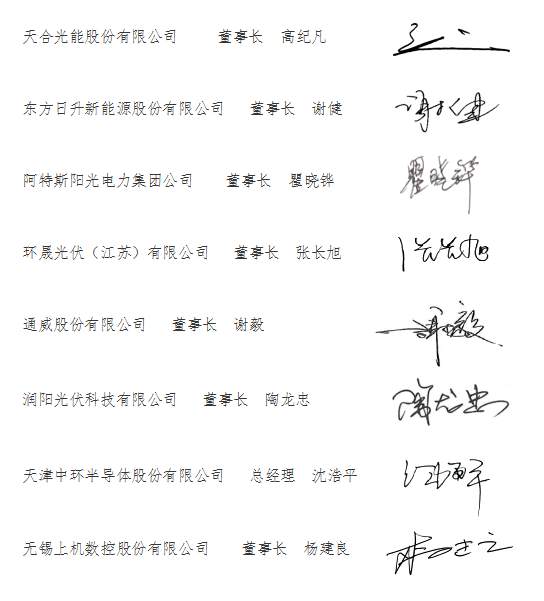 天合光能股份有限公司 董事长 高纪凡
东方日升新能源股份有限公司 董事长 谢健
阿特斯阳光电力集团公司 董事长 瞿晓铧 瞿晓铧
环晟光伏（江苏）有限公司 董事长 张长旭
通威股份有限公司 董事长 谢毅 谢毅
润阳光伏科技有限公司 董事长 陶龙忠 陶龙忠
天津中环半导体股份有限公司 总经理 沈浩平
无锡上机数控股份有限公司 董事长 杨建良